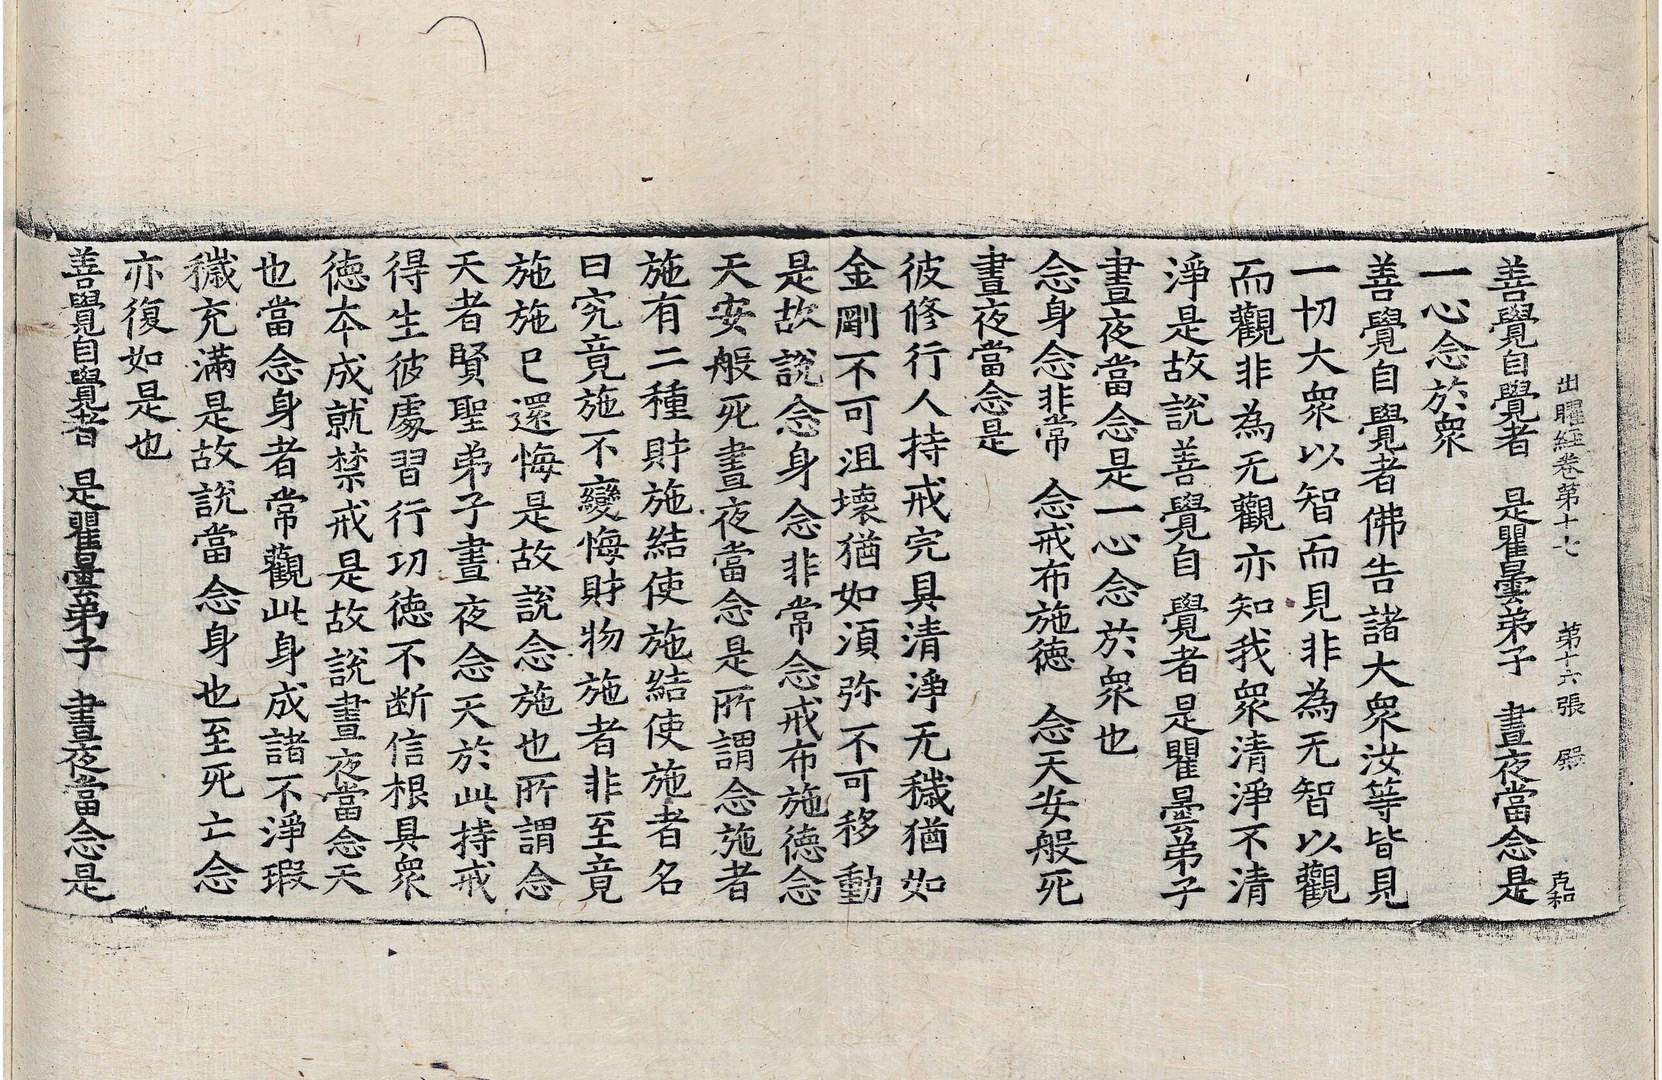 出曜経卷第十七 第十六張 殿 克和
善覺自覺者 是瞿曇弟子 晝夜當念是
一心念於衆
善覺自覺者佛告諸大衆汝等皆見
一切大衆以智而見非為无智以觀
而觀非為无觀亦知我衆清淨不清
淨是故說善覺自覺者是瞿曇弟子
晝夜當念是一心念於衆也
念身念非常 念戒布施徳 念天安般死
晝夜當念是
彼修行人持戒完具清淨无穢猶如
金剛不可沮壞猶如湏弥不可移動
是故說念身念非常念戒布施德念
天安般死晝夜當念是所謂念施者
施有二種財施結使施結使施者名
曰究竟施不變悔財物施者非至竟
施施已還悔是故說念施也所謂念
天者賢聖弟子晝夜念天於此持戒
得生彼處習行功德不断信根具衆
德本成就禁戒是故說晝夜當念天
也當念身者常觀此身成諸不淨瑕
穢充滿是故說當念身也至死亡念
亦復如是也
善覺自覺者 是瞿曇弟子 晝夜當念是